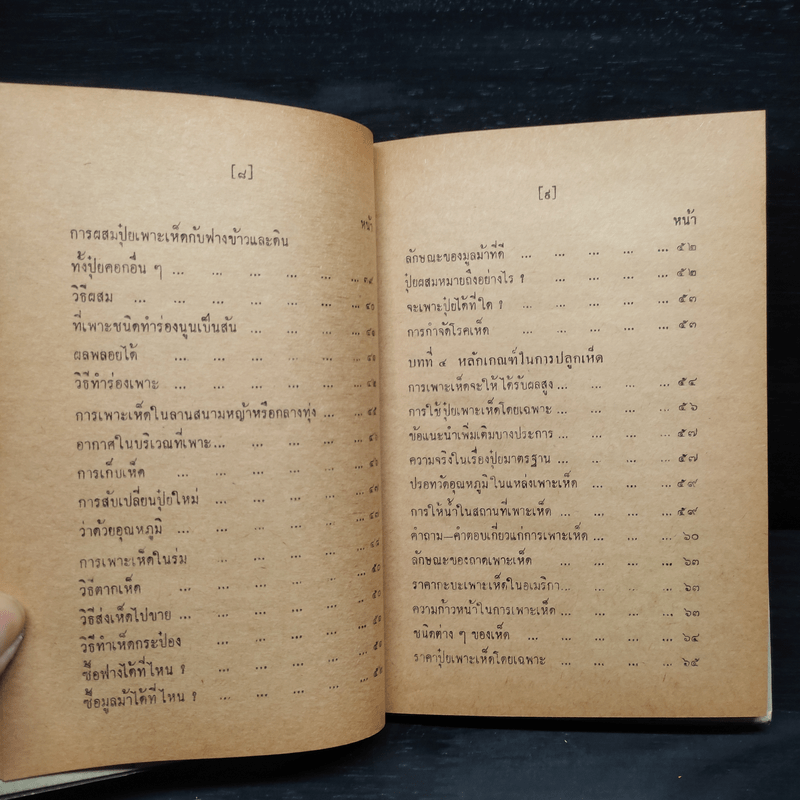 [๘]
หน้า
การผสมปุ๋ยเพาะเห็ดกับฟางข้าวและดิน
ทั้งปุ๋ยคอกอื่น ๆ ... ... ... ... ... ๓๔
วิธีผสม ... ... ... ... ... ๔๐
ที่เพาะชนิดทำร่องนูนเป็นสัน ... ... ...
ผลพลอยได้ ... ... ... ...
วิธีทำร่องเพาะ ... ... ... ...
การเพาะเห็ดในลานสนามหญ้าหรือกลางทุ่ง ... ...
อากาศในบริเวณที่เพาะ... ... ... ...
การเก็บเห็ด ... ... ... ...
การสับเปลี่ยนปุ๋ยใหม่ ... ... ... ๔๗
ว่าด้วยอุณหภูมิ ... ... ... ...
การเพาะเห็ดในร่ม ... ... ... ...
วิธีตากเห็ด ... ... ... ... ๕๐
วิธีส่งเห็ดไปขาย ... ... ... ... ๕๐
วิธีทำเห็ดกระป๋อง ... ... ... ...
ซื้อฟางได้ที่ไหน ? ... ... ... ...
ซื้อมูลม้าได้ที่ไหน ? ... ... ... ...
[๙]
หน้า
ลักษณะของมูลม้าที่ดี ... ... ... ... ๕๒
ปุ๋ยผสมหมายถึงอย่างไร ? ... ... ... ๕๒
จะเพาะปุ๋ยได้ที่ใด ? ... ... ... ๕๓
การกำจัดโรคเห็ด ... ... ... ... ๕๓
บทที่ ๔ หลักเกณฑ์ในการปลูกเห็ด
การเพาะเห็ดจะให้ได้รับผลสูง ... ... ... ๕๔
การใช้ปุ๋ยเพาะเห็ดโดยเฉพาะ ... ... ... ๕๖
ข้อแนะนำเพิ่มเติมบางประการ ... ... ... ๕๗
ความจริงในเรื่องปุ๋ยมาตรฐาน ... ... ... ๕๗
ปรอทวัดอุณหภูมิในแหล่งเพาะเห็ด ... ... ... ๕๙
การให้น้ำในสถานที่เพาะเห็ด ... ... ... ๕๙
คำถาม—คำตอบเกี่ยวแก่การเพาะเห็ด ... ... ... ๖๐
ลักษณะของถาดเพาะเห็ด ... ... ... ๖๓
ราคากะบะเพาะเห็ดในอเมริกา... ... ... ... ๖๓
ความก้าวหน้าในการเพาะเห็ด ... ... ... ๖๓
ชนิดต่าง ๆ ของเห็ด ... ... ... ... ๖๔
ราคาปุ๋ยเพาะเห็ดโดยเฉพาะ ... ... ... ๖๕